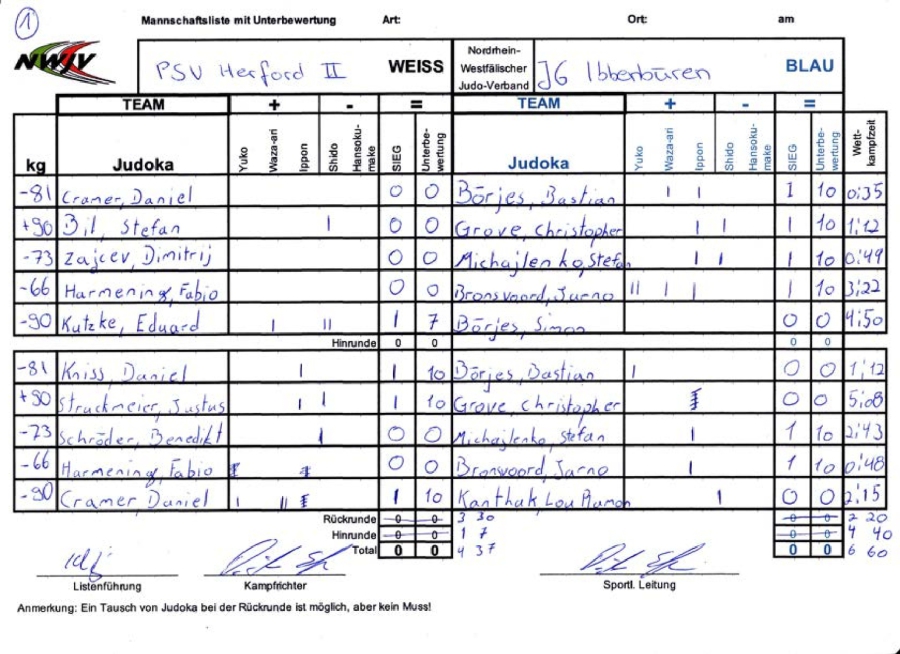 1
Mannschaftsliste mit Unterbewertung Art: Ort: am
NWJV PSV Herford II WEISS Nordrhein-Westfälischer Judo-Verband JG Ibbenbüren BLAU
TEAM + - = TEAM + - =
kg Judoka Yuko Waza-ari Ippon Shido Hansoku-make SIEG Unterbe-wertung Judoka Yuko Waza-ari Ippon Shido Hansoku-make SIEG Unterbe-wertung Wett-kampfzeit
-81 Cramer, Daniel 0 0 Börjes, Bastian | | 1 10 0:35
+90 Bil, Stefan | 0 0 Grove, Christopher | | 1 10 1:12
-73 Zajcev, Dimitrij 0 0 Michajlenko, Stefan | | 1 10 0:49
-66 Harmening, Fabio 0 0 Bronsvoord, Jarno || | | 1 10 3:22
-90 Kutzke, Eduard | || 1 7 Börjes, Simon 0 0 4:50
Hinrunde 0 0 0 0
-81 Kniss, Daniel | 1 10 Börjes, Bastian | 0 0 1:12
+90 Struckmeier, Justus | | 1 10 Grove, Christopher 0 0 5:08
-73 Schröder, Benedikt | 0 0 Michajlenko, Stefan | 1 10 2:43
-66 Harmening, Fabio 0 0 Bronvoord, Jarno | 1 10 0:48
-90 Cramer, Daniel | || 1 10 Kanthak, Lou Aumon | 0 0 2:15
Rückrunde 0 0 3 30 0 0 2 20
Hinrunde 0 0 1 7 0 0 4 40
Total 0 0 4 37 0 0 6 60
Listenführung Kampfrichter Sportl. Leitung
Anmerkung: Ein Tausch von Judoka bei der Rückrunde ist möglich, aber kein Muss!